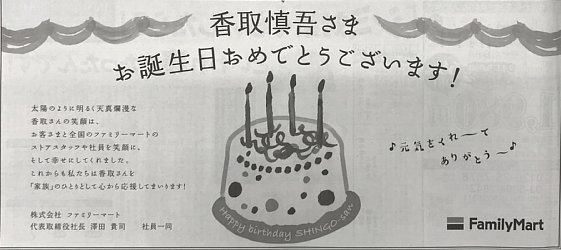 香取慎吾さま
お誕生日おめでとうございます!
太陽のように明るく天真爛漫な
香取さんの笑顔は、
お客さまと全国のファミリーマートの
ストアスタッフや社員を笑顔に、
そして幸せにしてくれました。
これからも私たちは香取さんを
「家族」のひとりとして心から応援してまいります!
株式会社 ファミリーマート
代表取締役社長 澤田 貴司 社員一同
Happy birthday SHINGO-san
♪元気をくれ〜て
ありがとう〜♪
FamilyMart